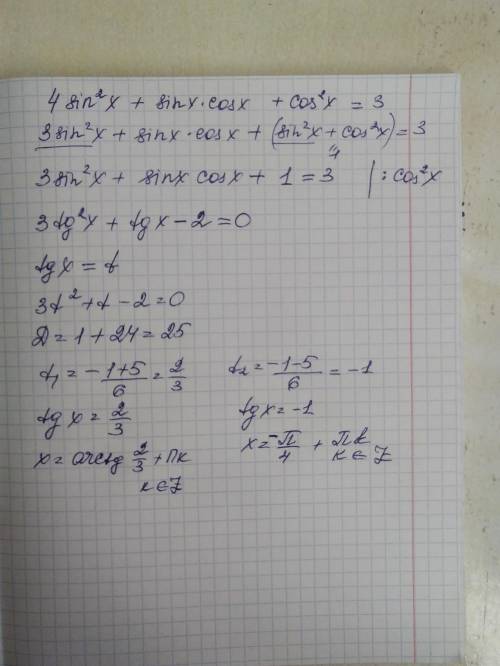 4 sin²x + sinx·cosx + cos²x = 3
3sin²x + sinx·cosx + (sin²x + cos²x) = 3
"1
3sin²x + sinx cosx + 1 = 3 | : cos²x
3tg²x + tgx - 2 = 0
tgx = t
3t² + t - 2 = 0
D = 1 + 24 = 25
t₁ = -1+5/6 = 2/3 t₂ = -1-5/6 = -1
tgx = 2/3 tgx = -1
x = arctg 2/3 + πk x = -π/4 + πk
k ∈ Z k ∈ Z